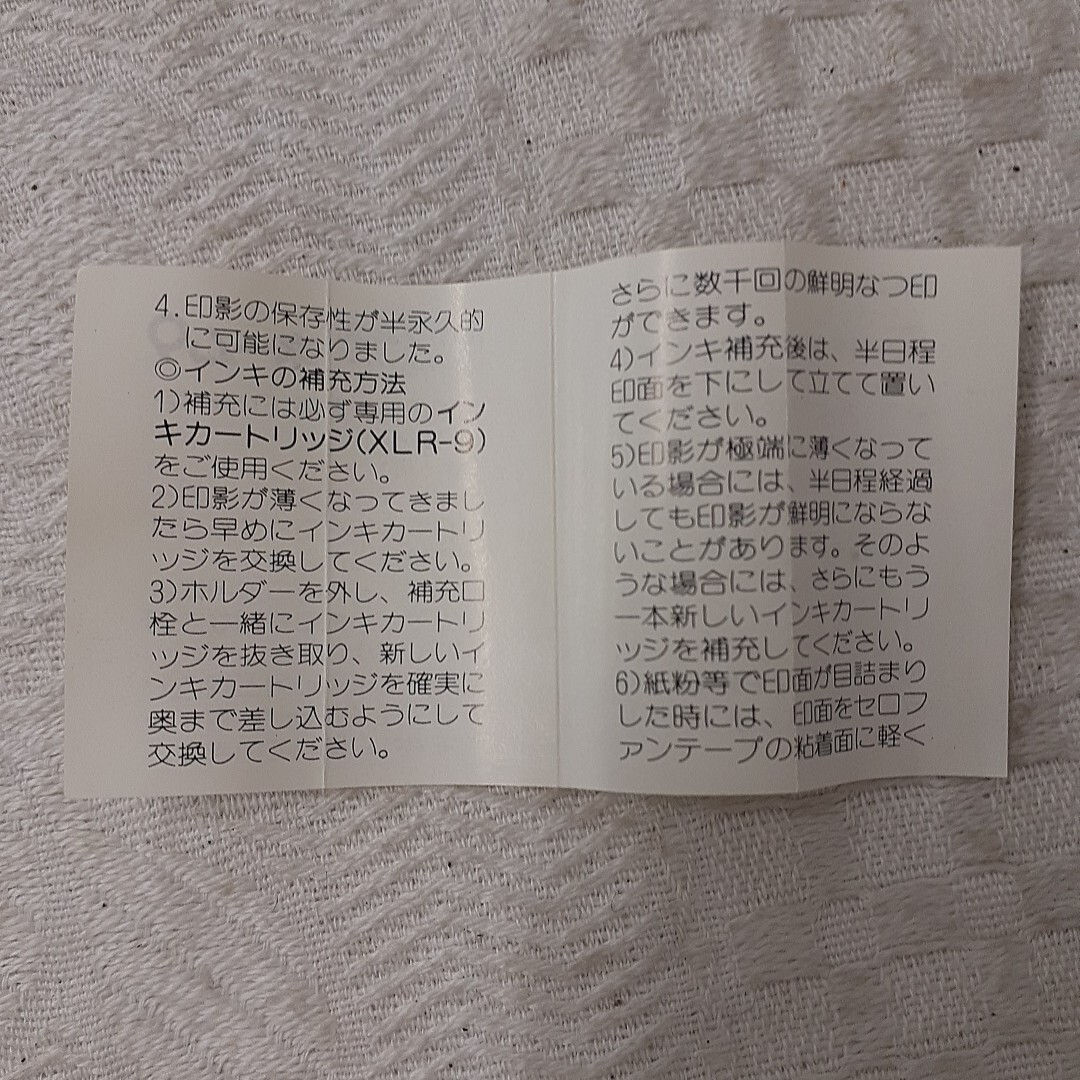 4.印影の保存性が半永久的
に可能になりました。
◎インキの補充方法
1)補充には必ず専用のイン
キカートリッジ(XLR-9)
をご使用ください。
2)印影が薄くなってきまし
たら早めにインキカートリ
ッジを交換してください。
3)ホルダーを外し、補充口
栓と一緒にインキカートリ
ッジを抜き取り、新しいイ
ンキカートリッジを確実に
奥まで差し込むようにして
交換してください。
さらに数千回の鮮明なつ印
ができます。
4)インキ補充後は、半日程
印面を下にして立てて置い
てください。
5)印影が極端に薄くなって
いる場合には、半日程経過
しても印影が鮮明にならな
いことがあります。そのよ
うな場合には、さらにもう
一本新しいインキカートリ
ッジを補充してください。
6)紙粉等で印面が目詰まり
した時には、印面をセロフ
ァンテープの粘着面に軽く